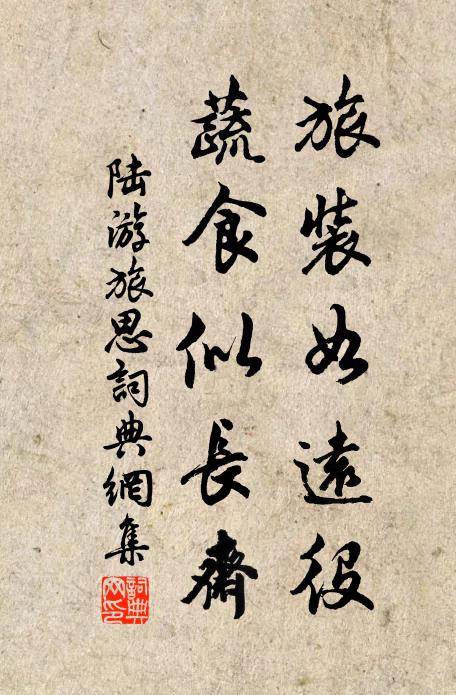 旅裝如遠役
蔬食似長齋
陸游旅思詞典網集
詞典网印